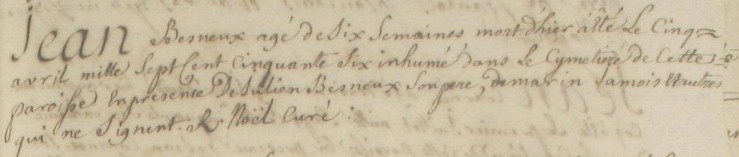 Jean Besneux agé de Six Semaines mort d'hier a Eté Le Cinq
avril mille Sept Cent Cinquante Six inhumé dans Le Cymetiere de Cette
paroisse En presence De Julien Besneux Son pere, de marin Lamois & autres
qui ne Signent. R. Noël Curé :